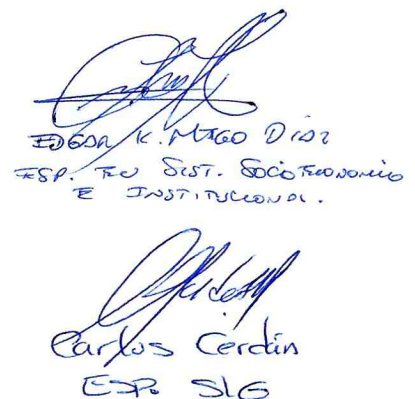 EDGAR K. MEGO DIAZ
ESP. EN SIST. SOCIOECONOMICO
E INSTITUCIONAL.
Carlos Cerdán
ESP. SIG